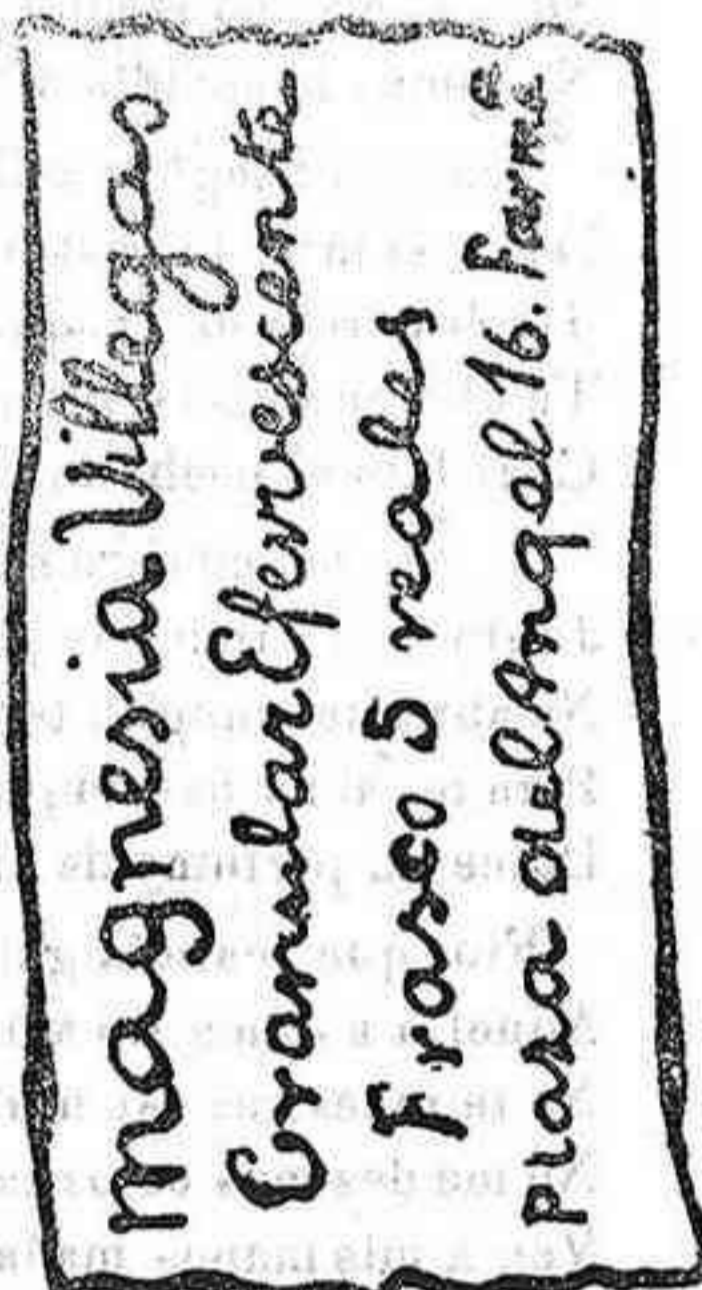 Magnesia Villegas
Granular Efervescente
Frasco 5 reales
plaza del Angel 16. Farmª